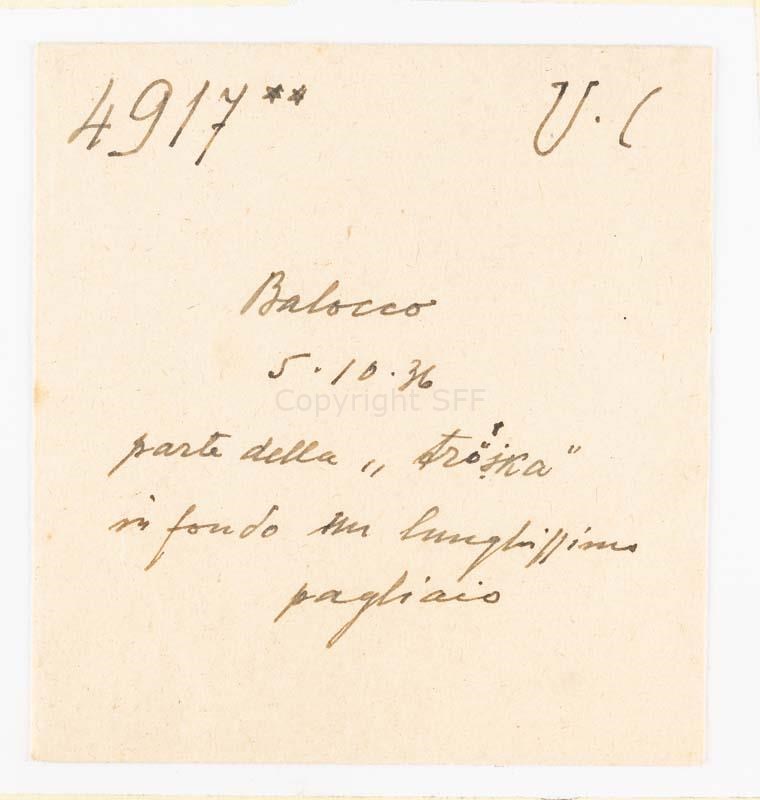 4917** U. (
Balocco
5.10.36
Copyright SFF
parte della „ tröjka"
in fondo un lunghissimo
pagliaio